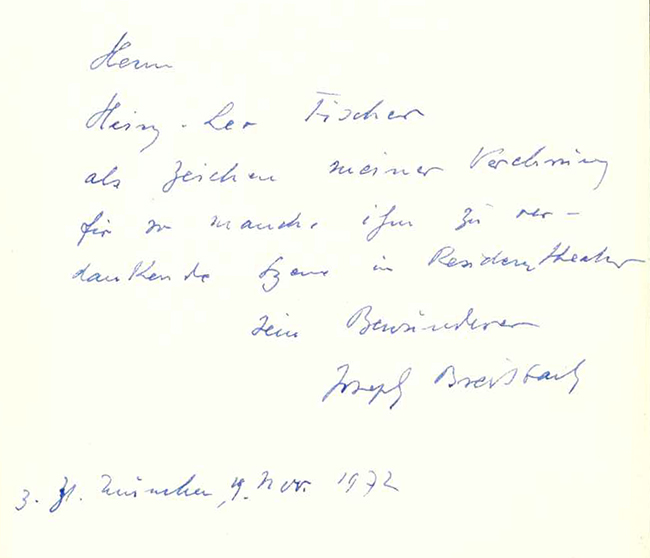 Herrn
Heinz-Leo Fischer
als Zeichen meiner Verehrung
für so manche ihm zu ver-
dankende Szene im Residenztheater
sein Bewunderer
Joseph Breitbach
z. Zt. München, 9. Nov. 1972